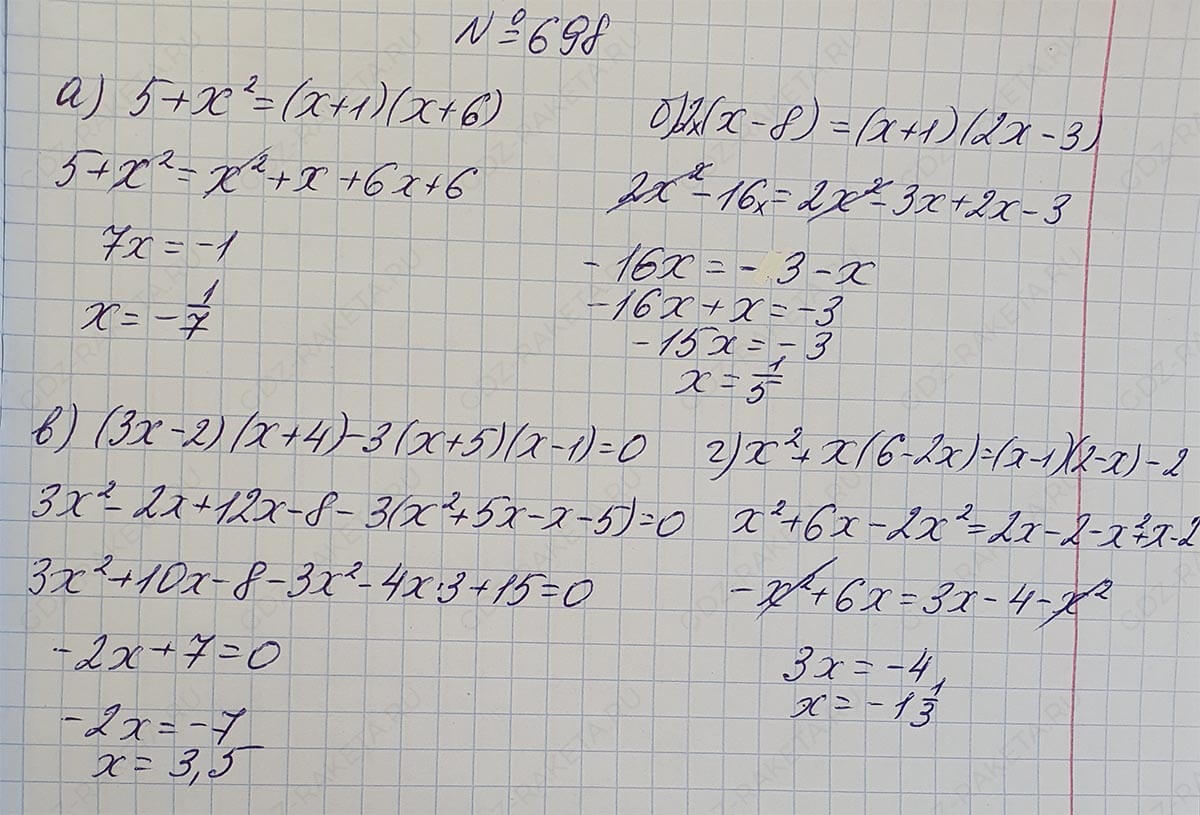 № 698
а) 5+x²=(x+1)(x+6)
5+x²=x²+x+6x+6
7x=-1
x=-1/7
б) 2x(x-8)=(x+1)(2x-3)
2x²-16x=2x²-3x+2x-3
-16x=-3-x
-16x+x=-3
-15x=-3
x=1/5
в) (3x-2)(x+4)-3(x+5)(x-1)=0
3x²-2x+12x-8-3(x²+5x-x-5)=0
3x²+10x-8-3x²-4x·3+15=0
-2x+7=0
-2x=-7
x=3,5
г) x²+x(6-2x)=(x-1)(2-x)-2
x²+6x-2x²=2x-2-x²+x-2
-x²+6x=3x-4-x²
3x=-4
x=-1 1/3
GDZ-RAKETA.RU